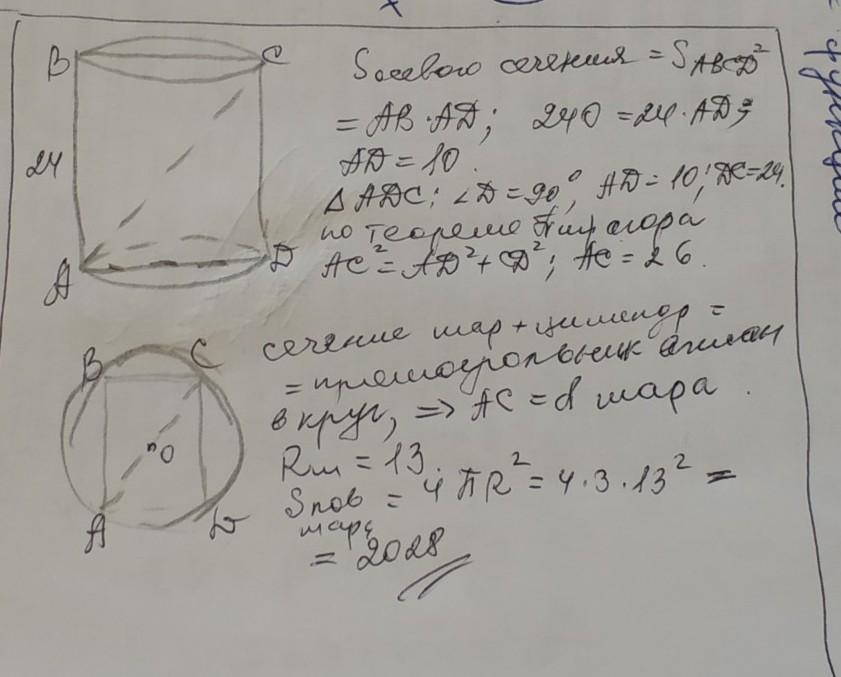 B C
24
A D
Sосевого сечения = SABCD =
= AB · AD; 240 = 24 · AD;
AD = 10.
△ ADC: ∠D = 90°, AD = 10, DC = 24.
по теореме Пифагора
AC² = AD² + CD²; AC = 26.
сечение шар + цилиндр =
= прямоугольник вписан
в круг, ⇒ AC = d шара.
B C
O
A D
Rш = 13.
Sпов = 4πR² = 4·3·13² =
шара
= 2028